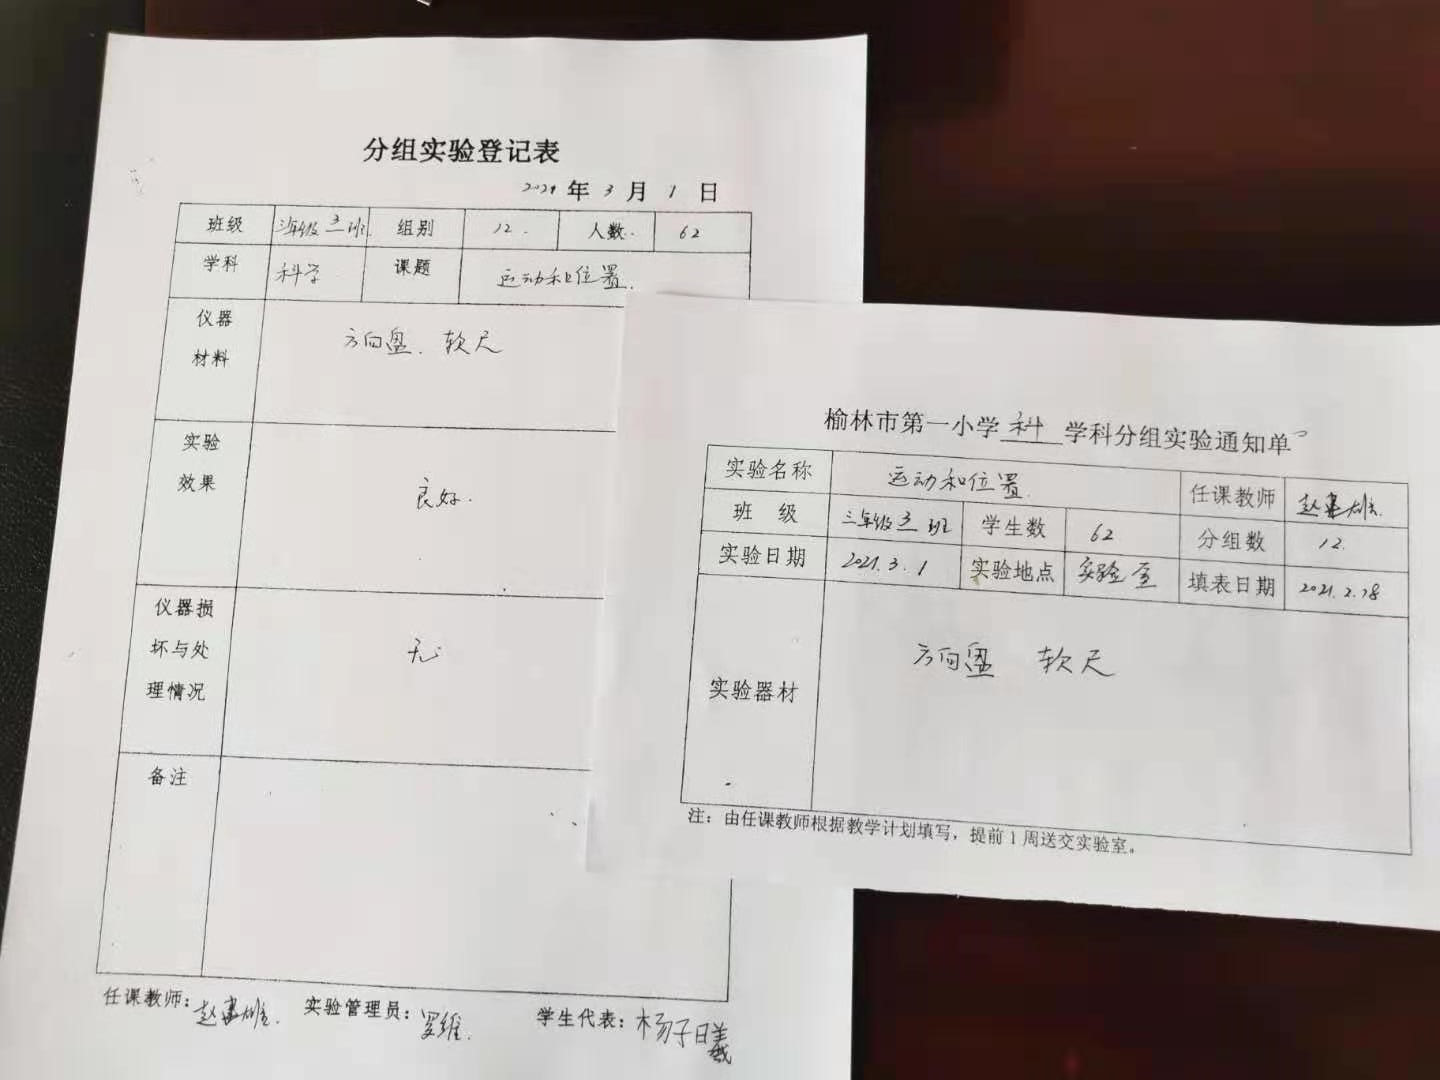 分组实验登记表
2021年3月1日
班级 三年级三班 组别 12. 人数 62
学科 科学 课题 运动和位置.
仪器材料 方向盘. 软尺
实验效果 良好.
仪器损坏与处理情况 无
备注
任课教师：赵建雄. 实验管理员：罗维. 学生代表：杨子曦
榆林市第一小学科学科分组实验通知单
实验名称 运动和位置 任课教师 赵建雄.
班 级 三年级三班 学生数 62 分组数 12.
实验日期 2021.3.1 实验地点 实验室 填表日期 2021.2.18
实验器材 方向盘 软尺
注：由任课教师根据教学计划填写，提前1周送交实验室。